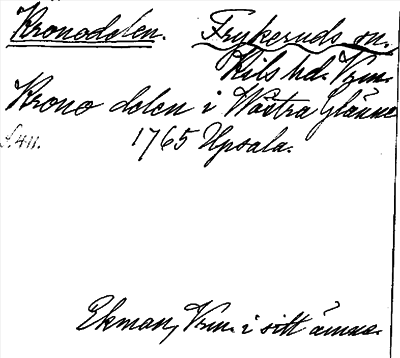 Kronodelen. Frykeruds sn.
Kils hd. Vrm.
Krono delen i Wästra Glänne
S. 411. 1765 Upsala.
Ekman, Vrm. i sitt ämne.